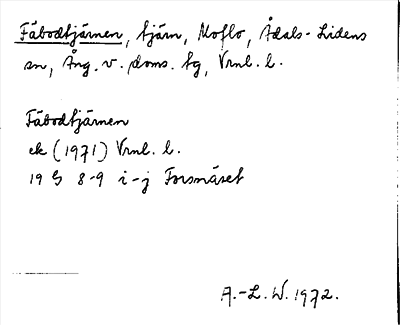 Fäbodtjärnen, tjärn, Moflo, Ådals-Lidens
sn, Ång. v. doms. tg, Vrnl. l.
Fäbodtjärnen
ek (1971) Vrnl. l.
19 G 8-9 i-j Forsnäset
A.-L. W. 1972.